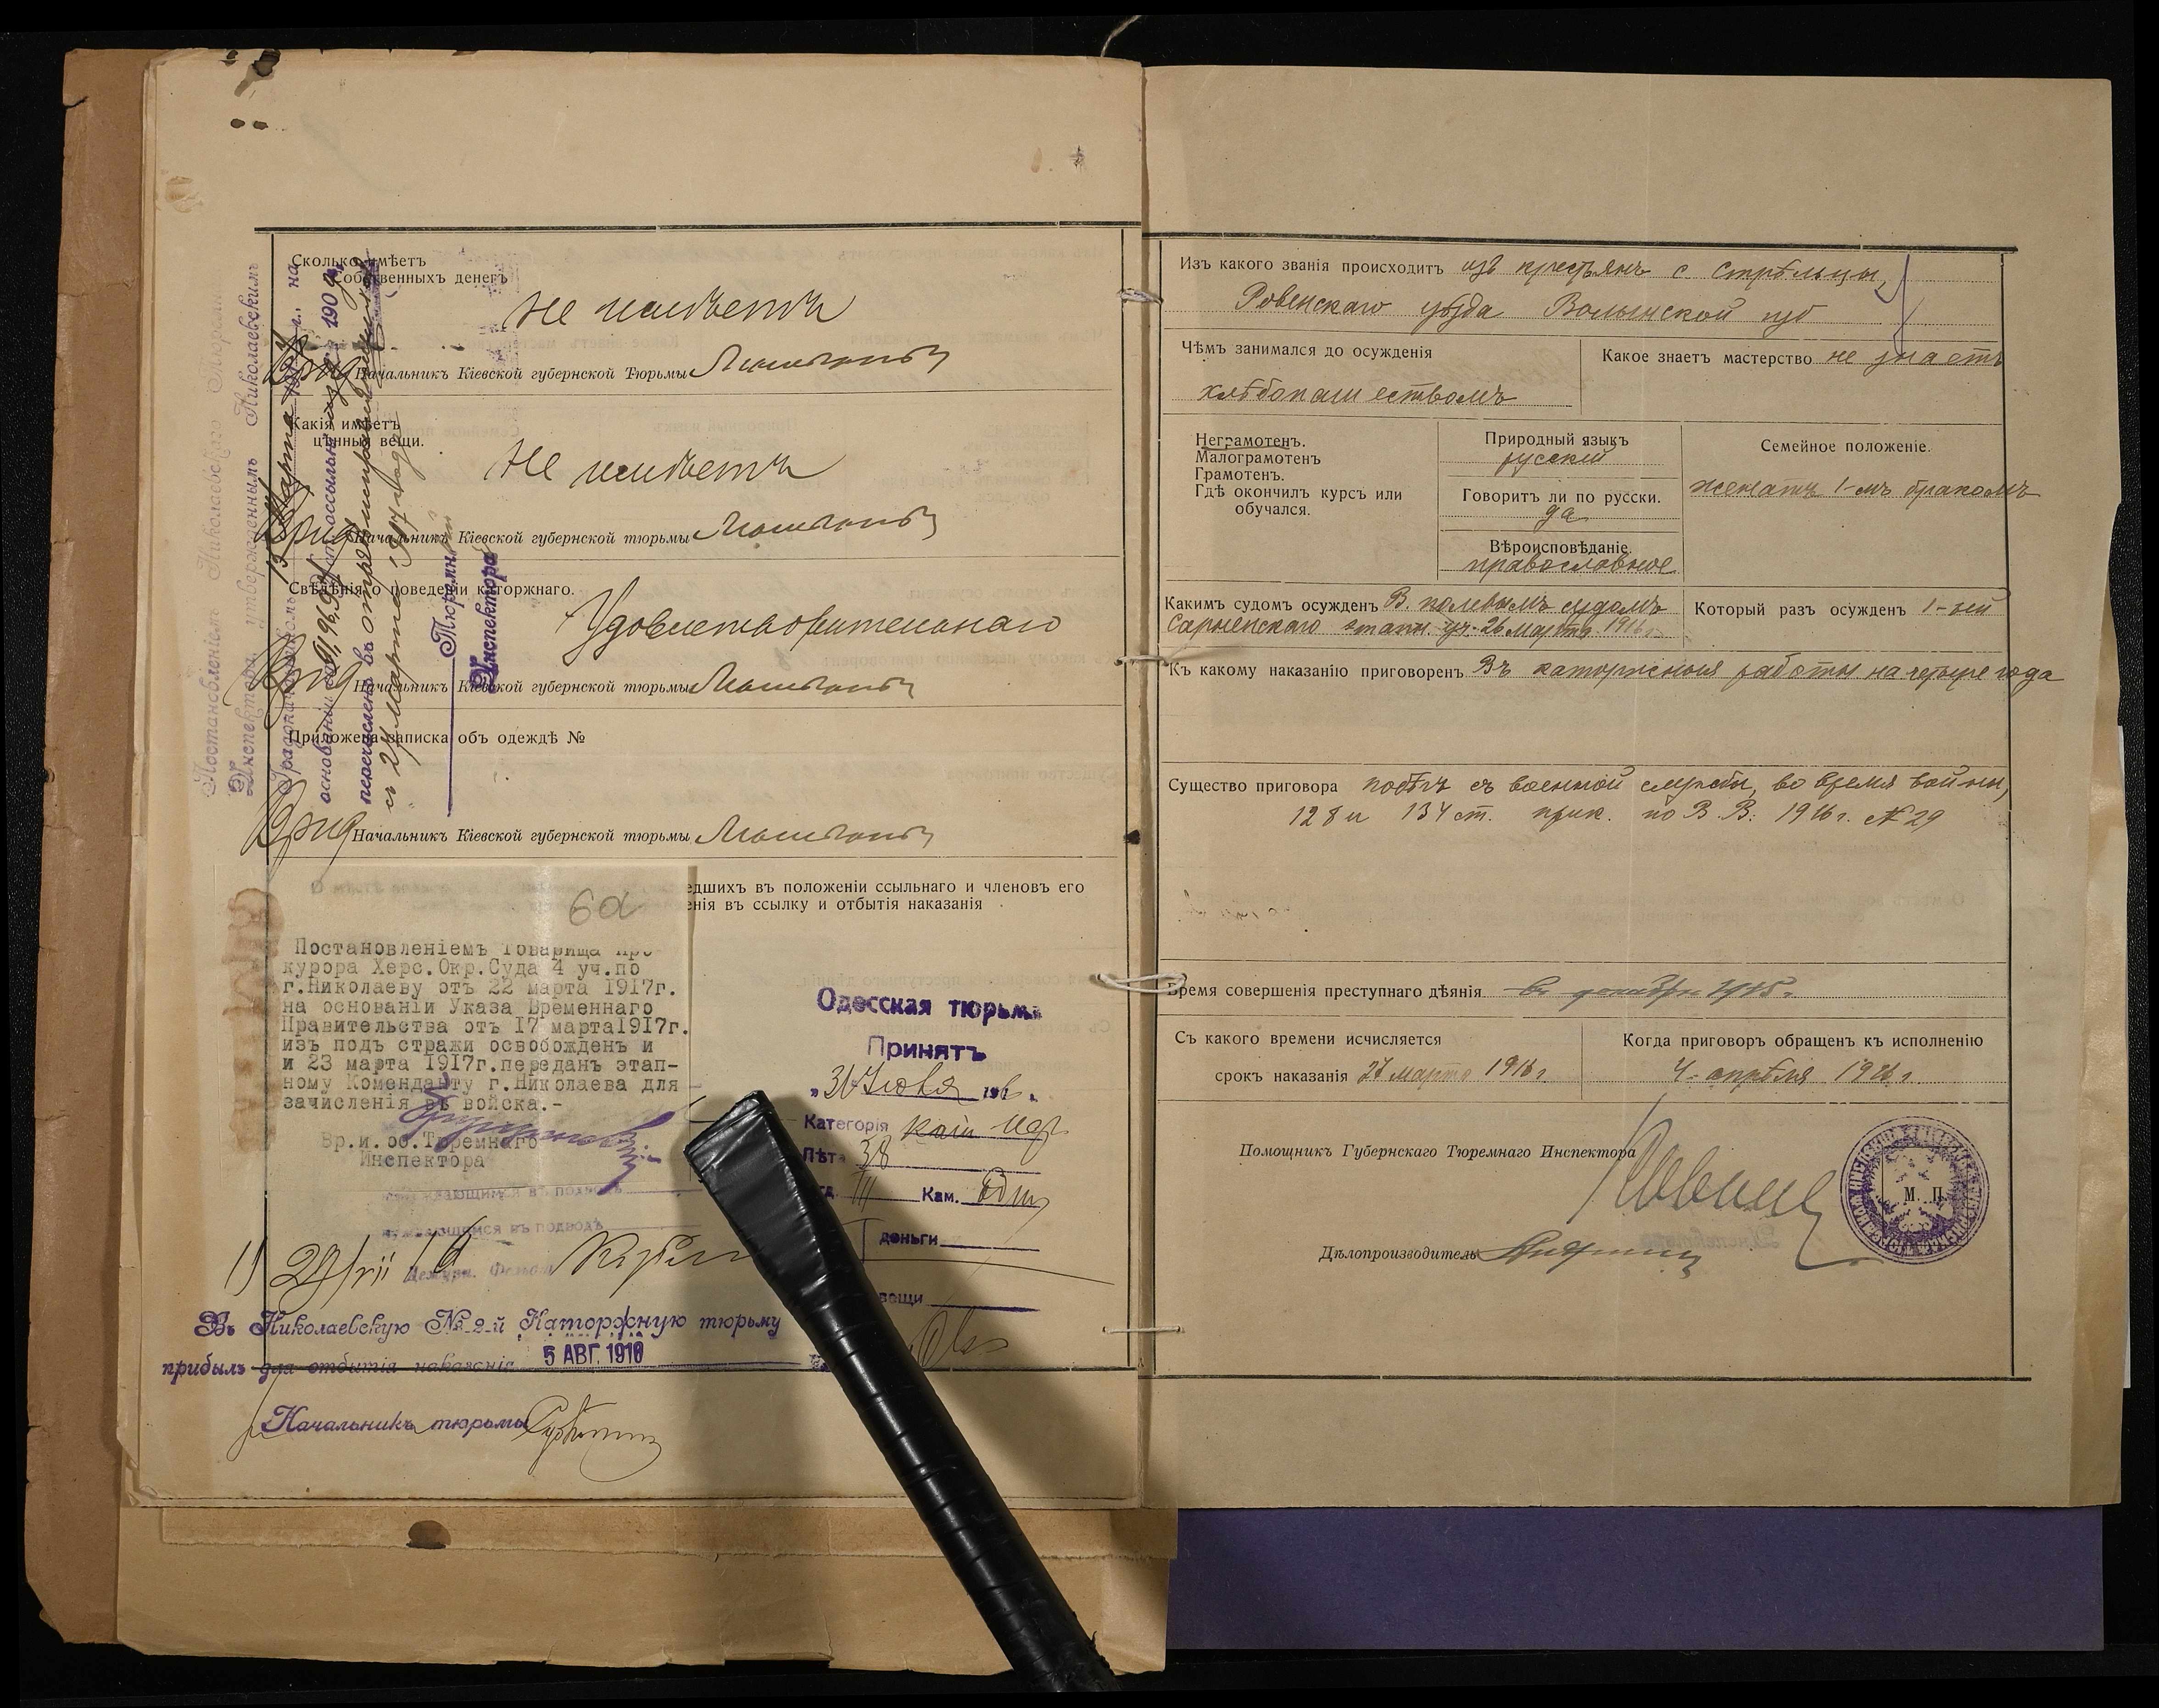 Сколько имѣетъ
Собственныхъ денегъ
не имѣетъ
Врид Начальникъ Кіевской губернской Тюрьмы
Какія имѣетъ
цѣнныя вещи.
не имѣетъ
Врид Начальникъ Кіевской губернской тюрьмы
Свѣдѣнія о поведеніи каторжнаго.
Удовлетворительнаго
Врид Начальникъ Кіевской губернской тюрьмы
Приложена записка объ одеждѣ №
Врид Начальникъ Кіевской губернской тюрьмы
Постановленіемъ Николаевскаго Тюремн
Инспектора утвержденнымъ Николаевскимъ
Градоначальникомъ 13 Марта г., на
основаніи ссыльн 190
перечисленъ въ отрядъ исправляющихся
съ 27 Марта 1917 года
Тюремный
Инспектора
едшихъ въ положеніи ссыльнаго и членовъ его
енія въ ссылку и отбытія наказанія
6а
Постановленіемъ Товарища Про
курора Херс.Окр.Суда 4 уч.по
г.Николаеву отъ 22 марта 1917г.
на основаніи Указа Временнаго
Правительства отъ 17 марта1917г.
изъ подъ стражи освобожденъ и
и 23 марта 1917г.переданъ этап-
ному Коменданту г.Николаева для
зачисленія въ войска.-
Вр.и. об.Тюремнаго
Инспектора
нуждающимся въ подводѣ
Одесская тюрьма
Принятъ
„31 Іюля 1916 г.
Категорія
Лѣтъ 38
III Кам.
деньги
вещи
1) 29/VII 16
Въ Николаевскую № 2-й Каторжную тюрьму
прибылъ для отбытія наказанія 5 АВГ. 1916
Начальникъ тюрьмы
Изъ какого званія происходитъ изъ крестьянъ с Стрѣльцы,
Ровенскаго уѣзда Волынской губ
Чѣмъ занимался до осужденія
хлѣбопашествомъ
Какое знаетъ мастерство не знаетъ
Неграмотенъ.
Малограмотенъ
Грамотенъ.
Гдѣ окончилъ курсъ или
обучался.
Природный языкъ
русскій
Говоритъ ли по русски.
да
Вѣроисповѣданіе.
православное
Семейное положеніе.
женатъ 1-мъ бракомъ
Какимъ судомъ осужденъ В. полевымъ судомъ
Сарненскаго этапн. уч. 26 марта 1916 г
Который разъ осужденъ 1-ый
Къ какому наказанію приговоренъ Въ каторжныя работы на четыре года
Существо приговора побѣгъ съ военной службы, во время войны,
128 и 134 ст. прик. по В. В. 1916 г. № 29
Время совершенія преступнаго дѣянія въ декабрѣ 1915 г.
Съ какого времени исчисляется
срокъ наказанія 27 марта 1916 г.
Когда приговоръ обращенъ къ исполненію
4 апрѣля 1916 г.
Помощникъ Губернскаго Тюремнаго Инспектора
М. П.
Дѣлопроизводитель